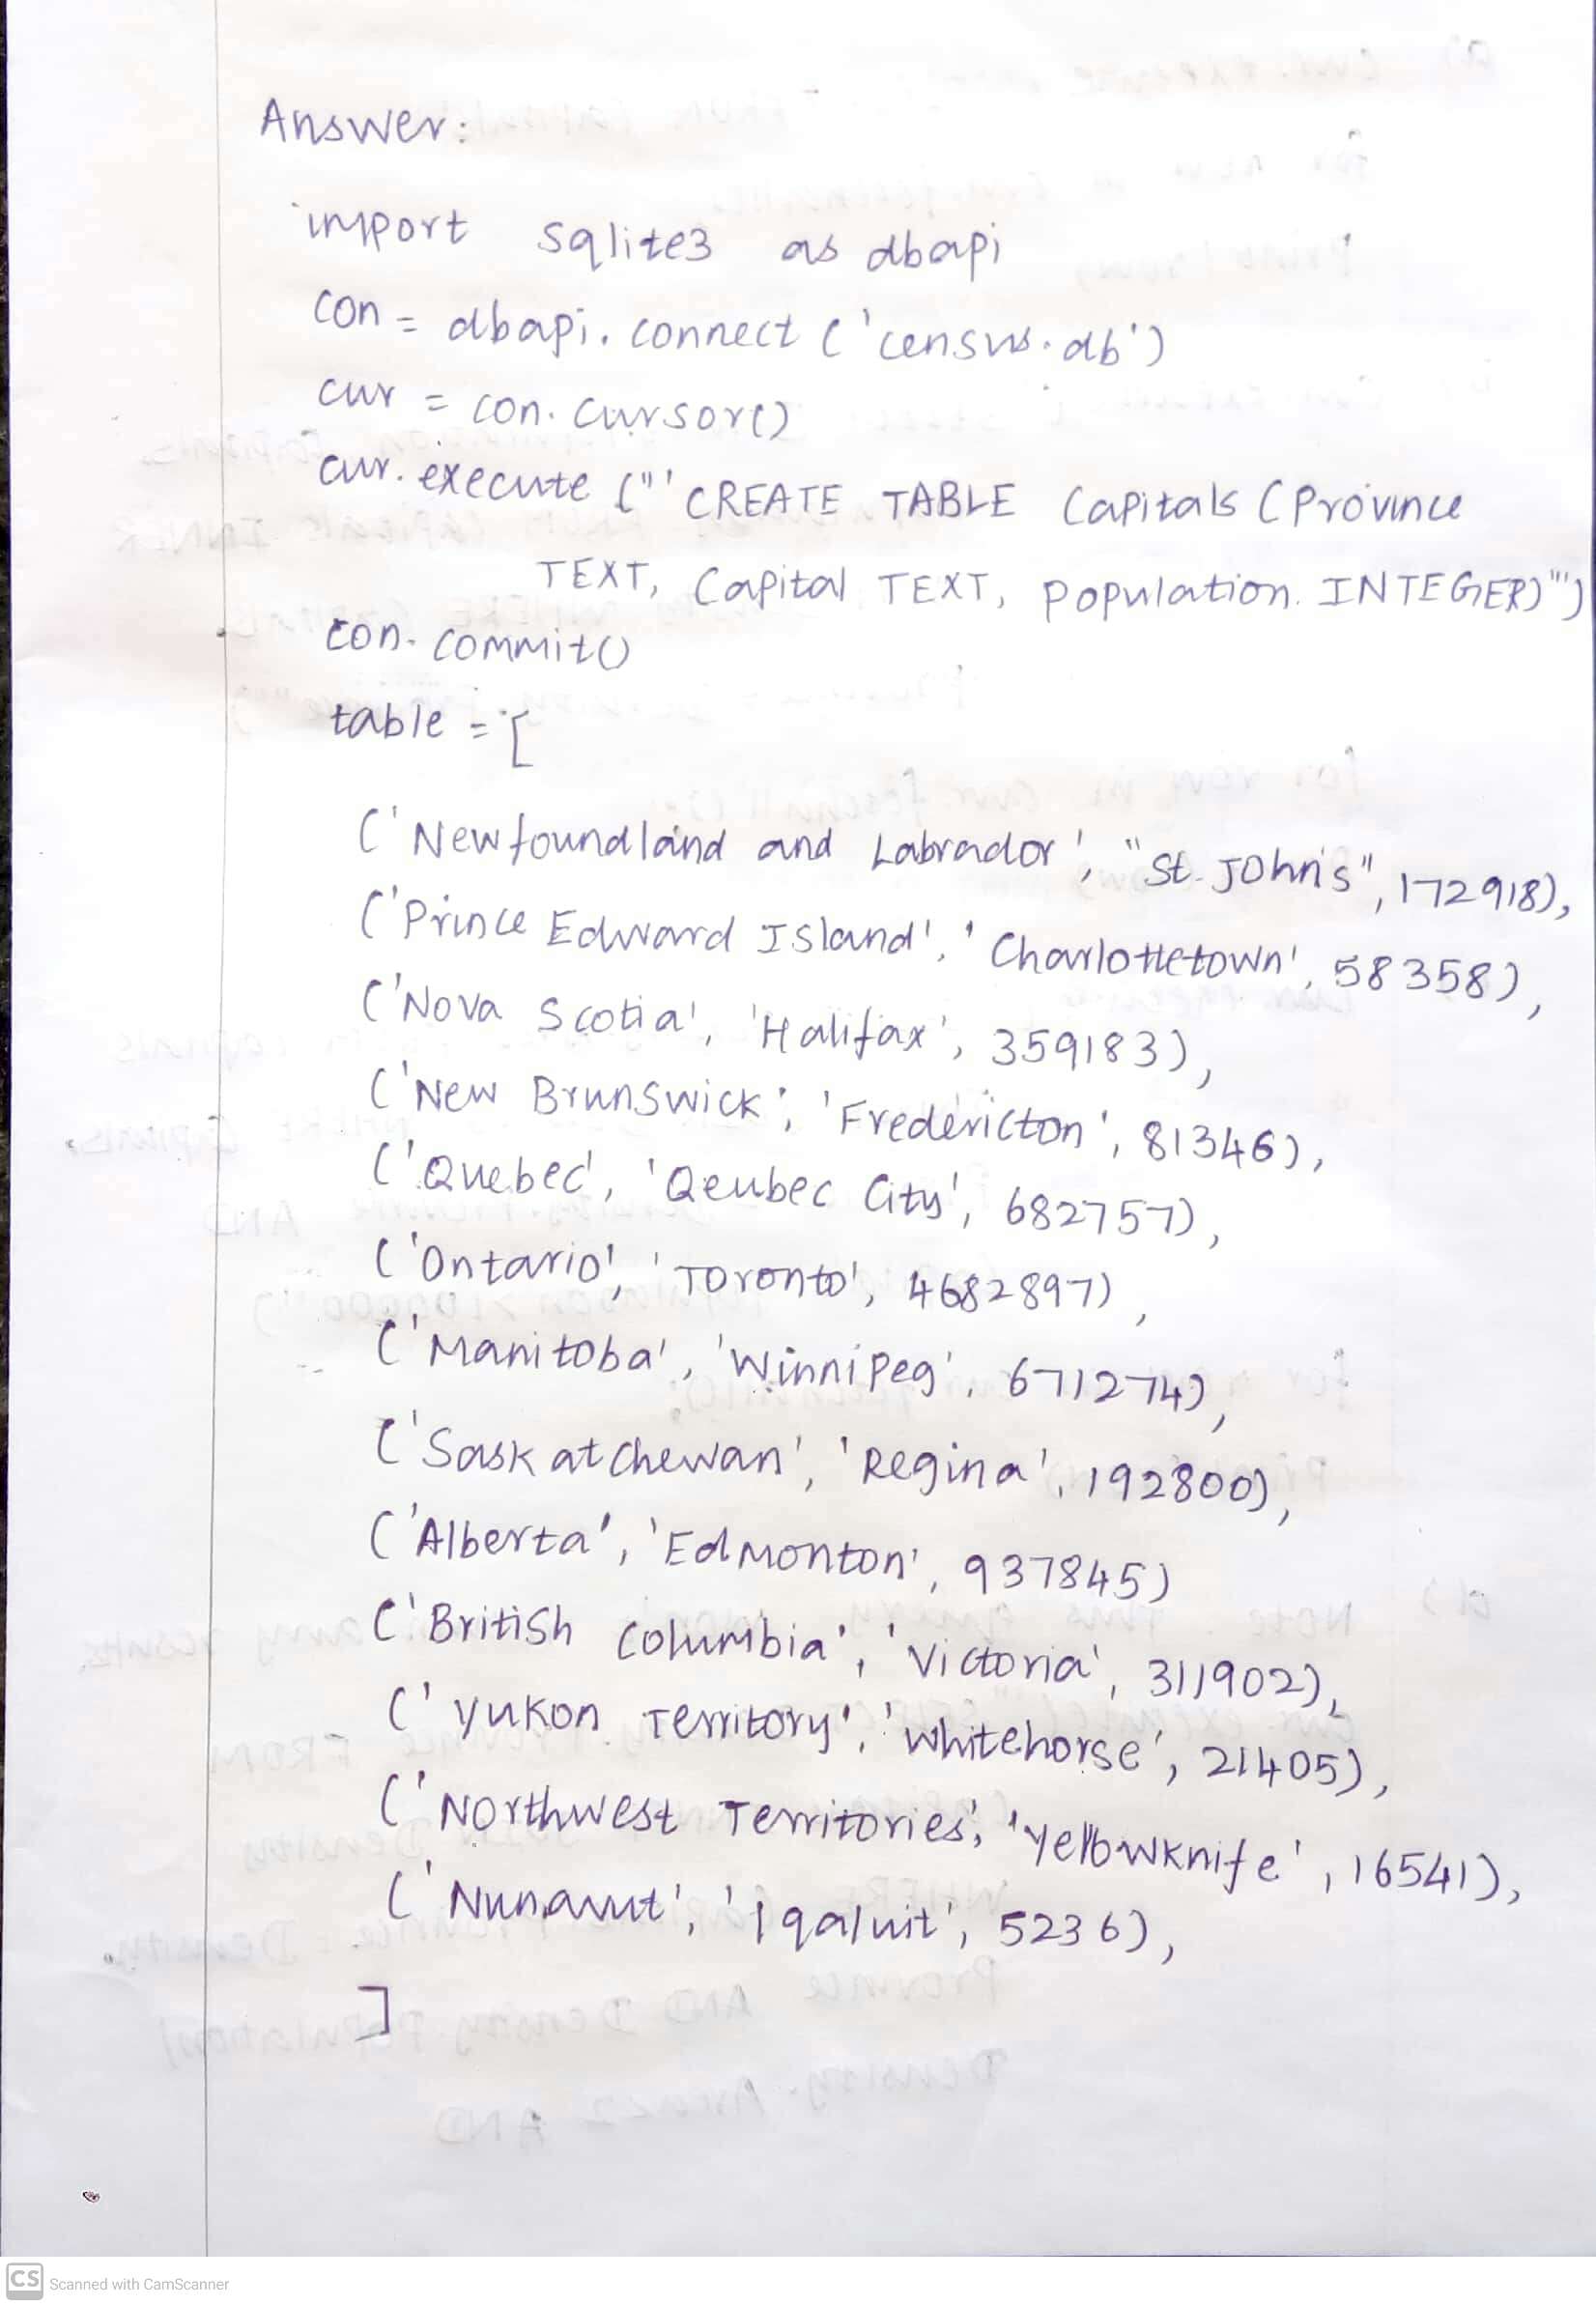 Answer:
import sqlite3 as dbapi
con = dbapi.connect ('census.db')
cur = con.cursor()
cur.execute ("' CREATE TABLE Capitals (Province
TEXT, Capital TEXT, Population. INTEGER)"')
con.commit()
table = [
('Newfoundland and Labrador', "St. John's", 172918),
('Prince Edward Island', 'Charlottetown', 58358),
('Nova Scotia', 'Halifax', 359183),
('New Brunswick', 'Fredericton', 81346),
('Quebec', 'Qeubec City', 682757),
('Ontario', 'Toronto', 4682897),
('Manitoba', 'Winnipeg', 671274),
('Saskatchewan', 'Regina', 192800),
('Alberta', 'Edmonton', 937845)
('British Columbia', 'Victoria', 311902),
('Yukon Territory', 'Whitehorse', 21405),
('Northwest Territories', 'Yellowknife', 16541),
('Nunavut', 'Iqaluit', 5236),
]
CS Scanned with CamScanner